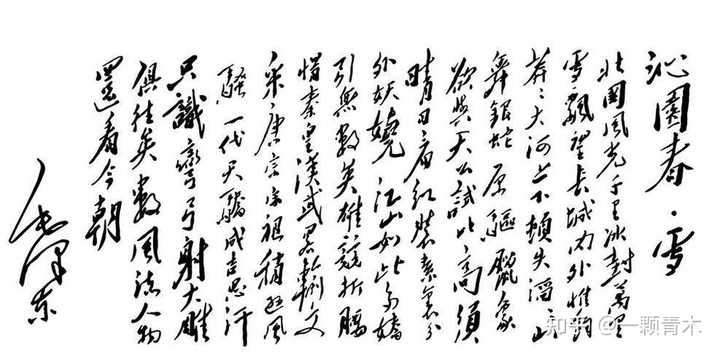 沁園春·雪
北國風光千里冰封萬里
雪飄望長城內外惟餘
莽〻大河上下頓失滔〻山
舞銀蛇原驅臘象
欲與天公試比高須
晴日看紅裝素裹分
外妖嬈江山如此多嬌
引無數英雄競折腰
惜秦皇漢武略輸文
采唐宗宋祖稍遜風
騷一代天驕成吉思汗
只識彎弓射大雕
俱往矣數風流人物
還看今朝
毛澤東
知乎 @一颗青木